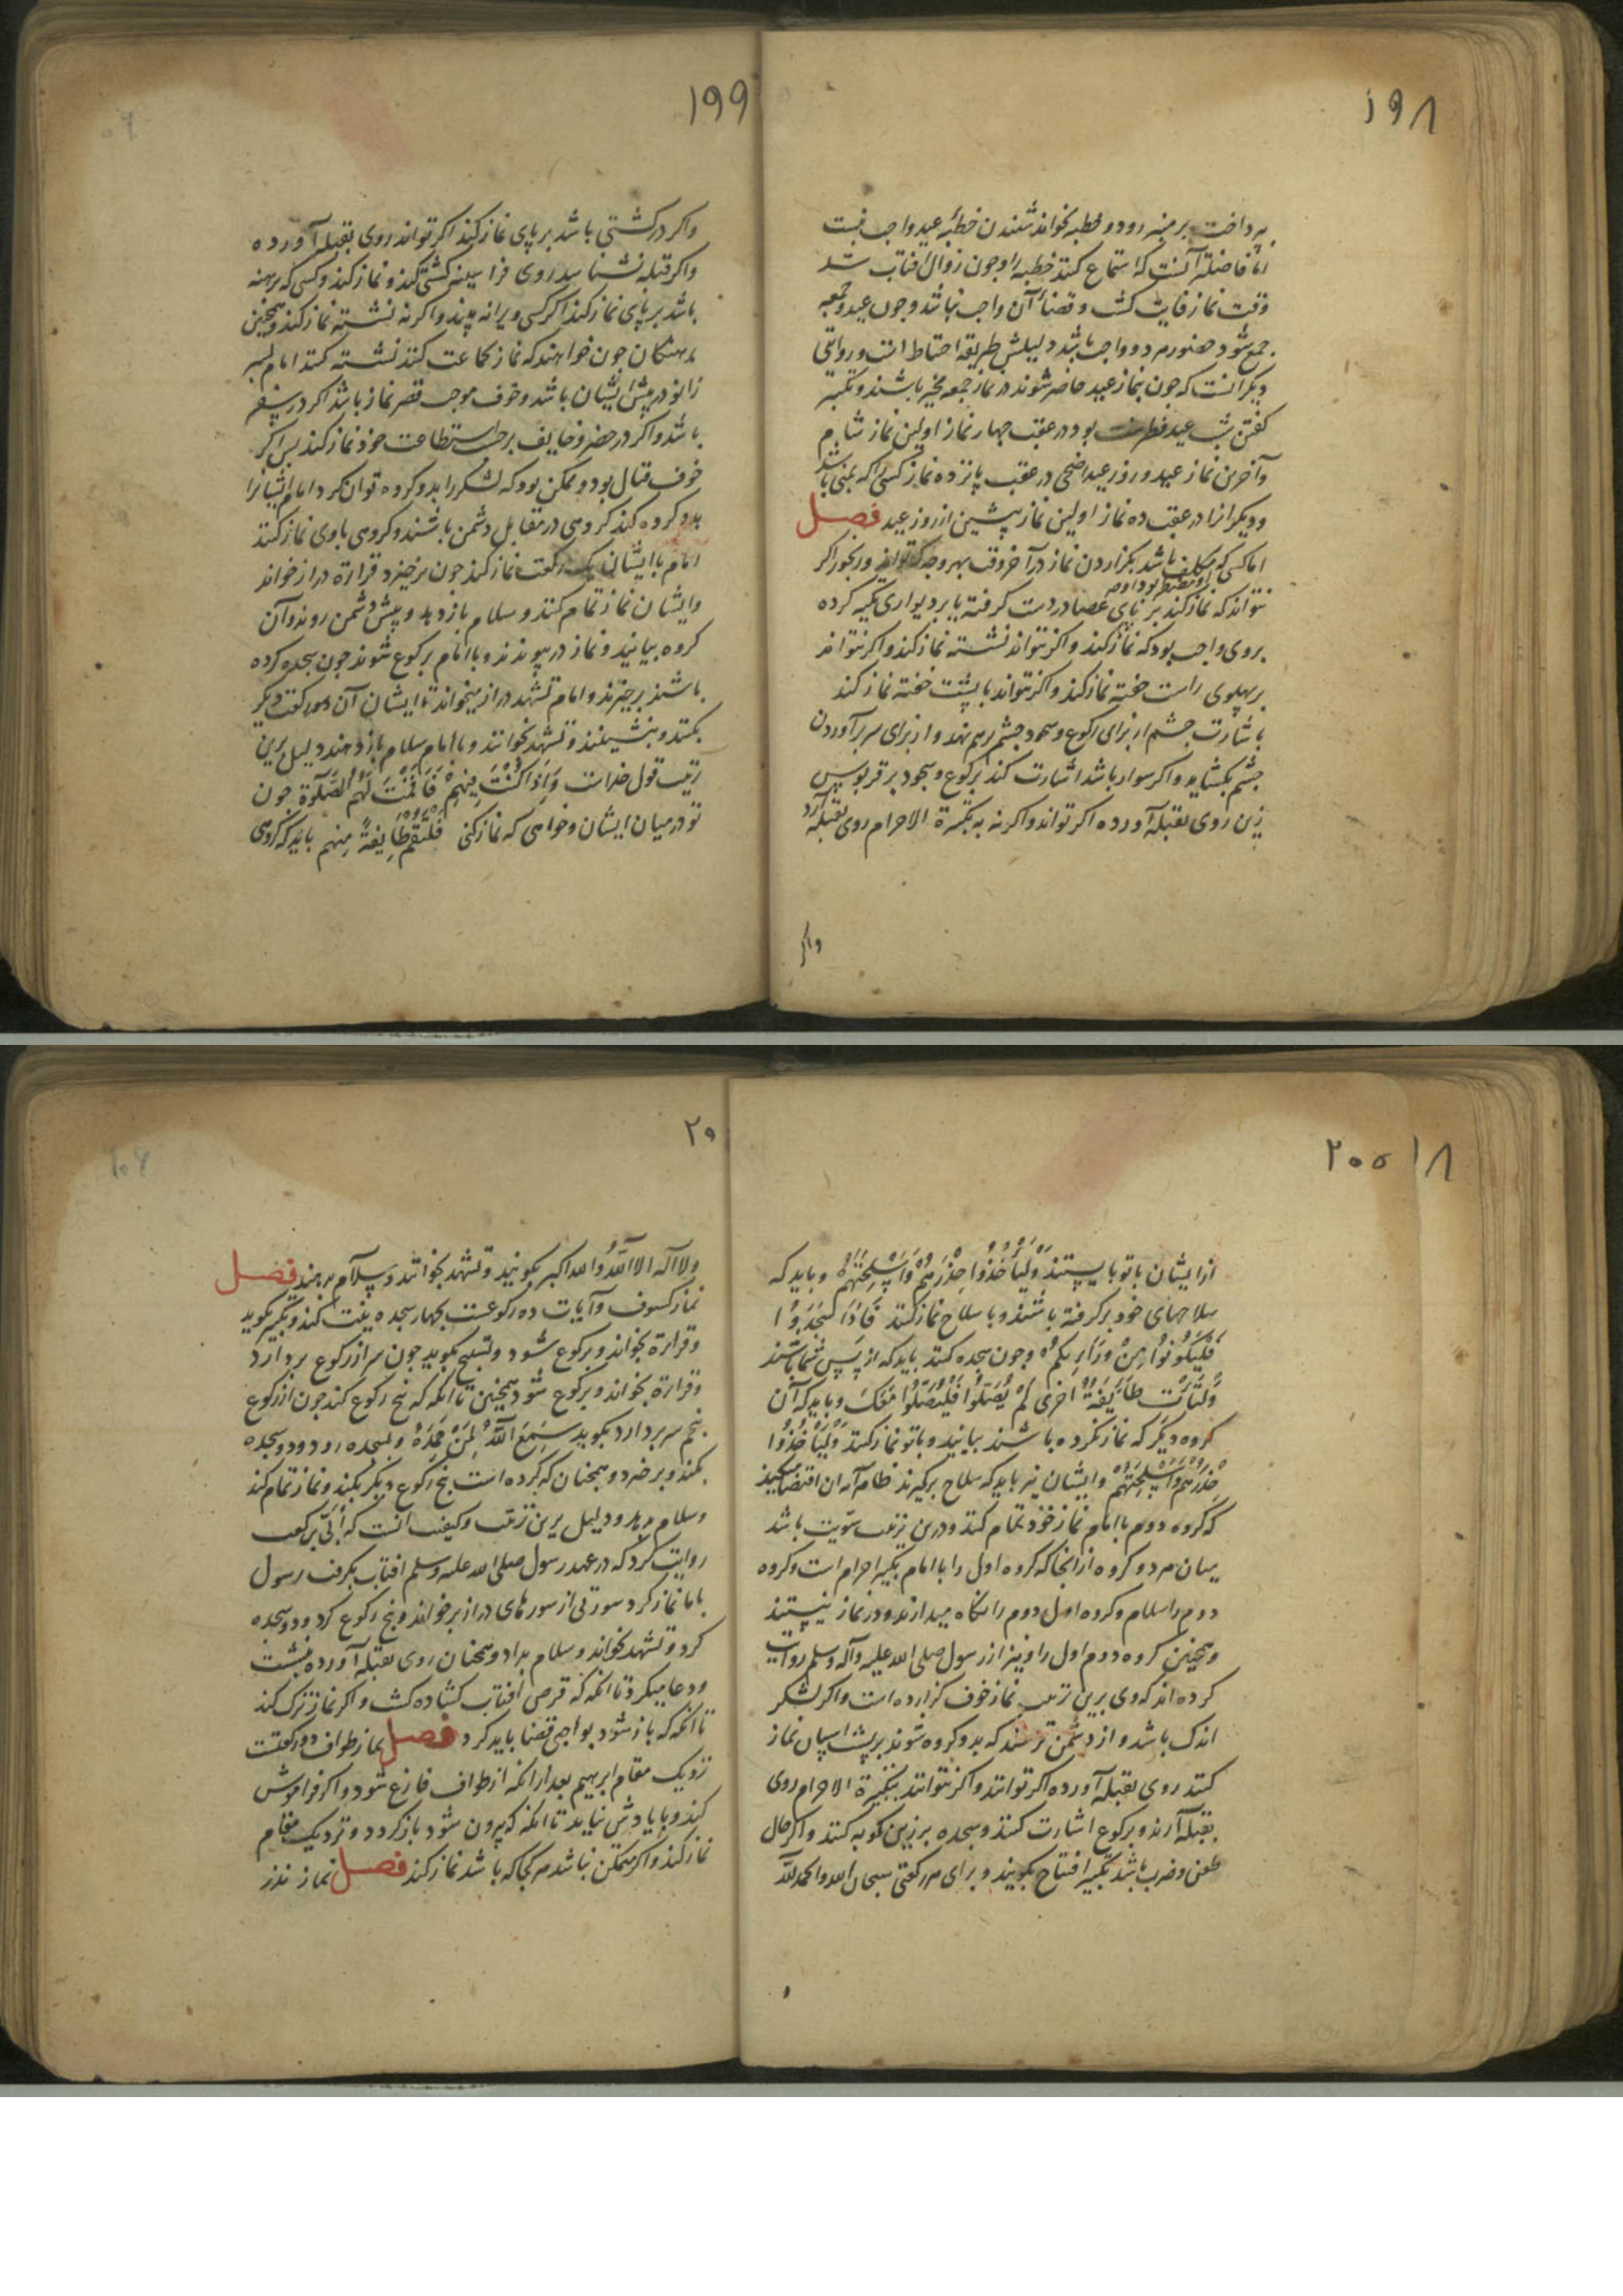 ۱۹۸
پرداخت بر منبر رود و خطبه بخواند شنیدن خطبهٔ عید واجب نیست
اما فاضلتر آنست که استماع کنند خطبه را و چون زوال افتاب شد
وقت نماز فایت کشت و قضاء آن واجب نباشد و چون عید و جمعه
جمع شود حضور هر دو واجب باشد دلیلش طریقهٔ احتیاط است و روایتی
دیکر انست که چون بنماز عید حاضر شوند در نماز جمعه مخیر باشند و تکبیر
کفتن شب عید فطر سنت بود در عقب چهار نماز اولین نماز شام
و آخرین نماز عید و روز عید اضحی در عقب پانزده نماز کسی را که بمنی باشد
و دیکرانرا در عقب ده نماز اولین نماز پیشین از روز عید فصل
اما کسی که مکلف باشد بکزاردن نماز در آخر وقت بهر وجه که تواند و رنجور اکر
نتواند که نماز کند بر پای عصا در دست کرفته یا بر دیواری تکیه کرده
بروی واجب بود که نماز کند و اکر نتواند نشسته نماز کند و اکر نتواند
بر پهلوی راست خفته نماز کند و اکر نتواند با پشت خفته نماز کند
باشارت چشم از برای رکوع و سجود چشم برهم نهد و از برای سر برآوردن
چشم بکشاید و اکر سوار باشد اشارت کند برکوع و سجود بر قربوس
زین روی بقبله آورده اکر تواند و اکر نه به تکبیرة الاحرام روی بقبله آرد
واکر
۱۹۹
واکر در کشتی باشد بر پای نماز کند اکر تواند روی بقبله آورده
و اکر قبله نشناسد روی فرا سینه کشتی کند و نماز کند و کسی که برهنه
باشد بر پای نماز کند اکر کسی ویرا نه بیند و اکر نه نشسته نماز کند و همچنین
برهنکان چون خواهند که نماز بجماعت کنند نشسته کنند امام بسر
زانو در پیش ایشان باشد و خوف موجب قصر نماز باشد اکر در سفر
باشد و اکر در حضر و خایف بر حسب استطاعت خود نماز کند پس اکر
خوف قتال بود و ممکن بود که لشکر را بدو کروه توان کرد امام ایشانرا
بدو کروه کند کروهی در مقابل دشمن باشند و کروهی با وی نماز کنند
امام با ایشان یک رکعت نماز کند چون برخیزد قراءة دراز خواند
و ایشان نماز تمام کنند و سلام باز دهند و پیش دشمن روند و آن
کروه بیایند و نماز در پیوندند و با امام برکوع شوند چون سجده کرده
باشند برخیزند و امام تشهد دراز میخواند تا ایشان آن رکعت دیکر
بکنند و بنشینند و تشهد بخوانند و با امام سلام باز دهند دلیل برین
ترتیب قول خداست وَاِذَا كُنْتَ فِيهِمْ فَاَقَمْتَ لَهُمُ الصَّلوٰةَ چون
تو در میان ایشان و خواهی که نماز کنی فَلْتَقُمْ طَايِفَةٌ مِنهم باید که کروهی
۲۰۰ ۱۸
از ایشان با تو بایستند وَلْيَأْخُذُوا حِذْرَهُمْ وَاَسْلِحَتَهُمْ و باید که
سلاحهای خود بر کرفته باشند و با سلاح نماز کنند فَاِذَا سَجَدُوا
فَلْيَكُونُوا مِنْ وَرَائِكُمْ و چون سجده کنند باید که از پس شما باشند
وَلْتَأْتِ طَايِفَةٌ اُخرَى لَمْ يُصَلُّوا فَلْيُصَلُّوا مَعَكَ و باید که آن
کروه دیکر که نماز نکرده باشند بیایند و با تو نماز کنند وَلْيَأْخُذُوا
حِذْرَهُمْ وَاَسْلِحَتَهُمْ و ایشان نیز باید که سلاح برکیرند ظاهر آیه ان اقتضا میکند
که کروه دوم با امام نماز خود تمام کنند و درین ترتیب سویت باشد
میان هر دو کروه از انجا که کروه اول را با امام تکبیر احرام است و کروه
دوم را سلام و کروه اول دوم را نکاه میدارند و در نماز نیستند
و همچنین کروه دوم اول را و نیز از رسول صلی الله علیه و آله و سلم روایت
کرده اند که وی برین ترتیب نماز خوف کزارده است و اکر لشکر
اندک باشد و از دشمن ترسند که بدو کروه شوند بر پشت اسپان نماز
کنند روی بقبله آورده اکر توانند و اکر نتوانند بتکبیرة الاحرام روی
بقبله آرند و برکوع اشارت کنند و سجده بر زین کوبه کنند و اکر حال
طعن و ضرب باشد تکبیر افتتاح بکویند و برای هر رکعتی سبحان الله والحمد لله
۲۰
ولا اله الا الله والله اکبر بکویند و تشهد بخوانند و سلام بدهند فصل
نماز کسوف و آیات ده رکوعست بچهار سجده نیت کند و تکبیر بکوید
و قراءة بخواند و برکوع شود و تسبیح بکوید چون سر از رکوع بردارد
و قراءة بخواند و برکوع شود همچنین تا انکه که پنج رکوع کند چون از رکوع
پنجم سر بردارد بکوید سَمِعَ اللّٰهُ لِمَنْ حَمِدَهُ و بسجده رود و دو سجده
بکند و برخیزد و همچنان که کرده است پنج رکوع دیکر بکند و نماز تمام کند
و سلام بدهد و دلیل برین ترتیب و کیفیت انست که اُبَیّ بن کعب
روایت کرد که در عهد رسول صلی الله علیه و سلم افتاب بکرفت رسول
با ما نماز کرد سورتی از سورهای دراز برخواند و پنج رکوع کرد و دو سجده
کرد و تشهد بخواند و سلام بداد و همچنان روی بقبله آورده بنشست
و دعا میکرد تا انکه که قرص افتاب کشاده کشت و اکر نماز ترک کند
تا انکه که باز شود بواجبی قضا باید کرد فصل نماز طواف دو رکعتست
نزدیک مقام ابرهیم بعد از انکه از طواف فارغ شود و اکر فراموش
کند و با یادش نیاید تا انکه که بیرون شود باز کردد و نزدیک مقام
نماز کند و اکر متمکن نباشد هر کجا که باشد نماز کند فصل نماز نذر